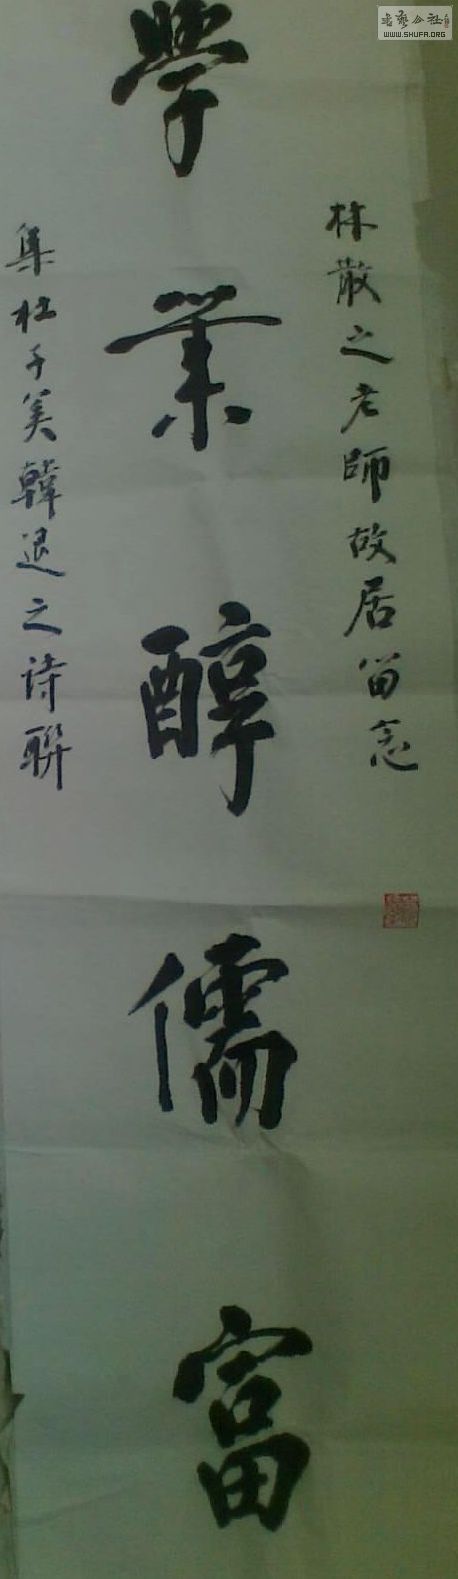 林散之老师故居留念
學業醇儒富
集杜子美韓退之诗聯
書藝公社
WWW.SHUFA.ORG